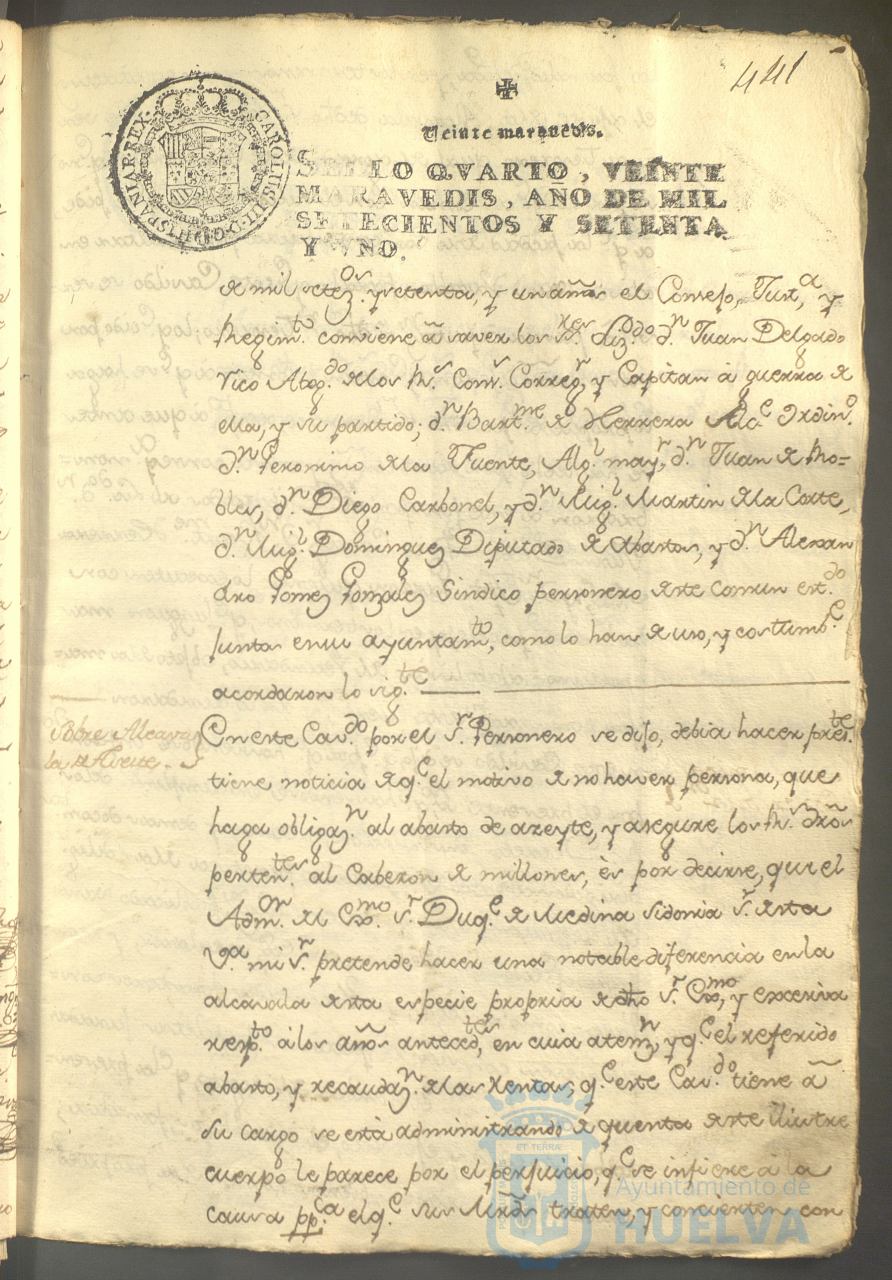 441
Veinte maravedis.
SELLO QVARTO, VEINTE
MARAVEDIS, AÑO DE MIL
SETECIENTOS Y SETENTA
Y VNO.
CAROLUS III D. G. HISPANIAR. REX.
de mil setez.os y setenta, y un años el Consejo, Just.a, y
Regim.to conviene á saver los S.res Liz.do d.n Juan Delgado
Vico Abog.do de los R.s Cons.s Correg.r, y Capitan á guerra de
ella, y su partido; d.n Bart.me de Herrera Alc.e Ordin.o
d.n Geronimo de la Fuente, Alg.l may.r, d.n Juan de Ro=
bles, d.n Diego Carbonel, y d.n Mig.l Martin de la Corte,
d.n Mig.l Dominguez Diputado de Abastos, y d.n Alexan
dro Gomez Gonzalez Sindico personero deste comun est.do
juntos en su ayuntam.to, como lo han de uso, y costumb.e
acordaron lo sig.te
Sobre Alcava
la de Aceite.
En este Cav.do por el S.r Personero se dijo, debia hacer pres.te
tiene noticia de q.e el motivo de no haver persona, que
haga obligaz.n al abasto de azeyte, y asegure los R.s dros
perten.tes al Caberon de millones, és por decirse, que el
Adm.or del Exmo. S.r Duq.e de Medina Sidonia S.r desta
V.a mi S.r pretende hacer una notable diferencia en la
alcavala desta especie propria de dho S.r Exmo, y excesiva
resp.to á los años anteced.tes, en cuia atenz.n, y q.e el referido
abasto, y recaudaz.n de las Rentas, q.e este Cav.do tiene á
su cargo se está administrando de quenta deste ilustre
cuerpo le parece por el perjuicio, q.e se infiere á la
causa pp.ca el q.e sus Mrds traten, y concierten con
ET TERRÆ
Ayuntamiento de
HUELVA